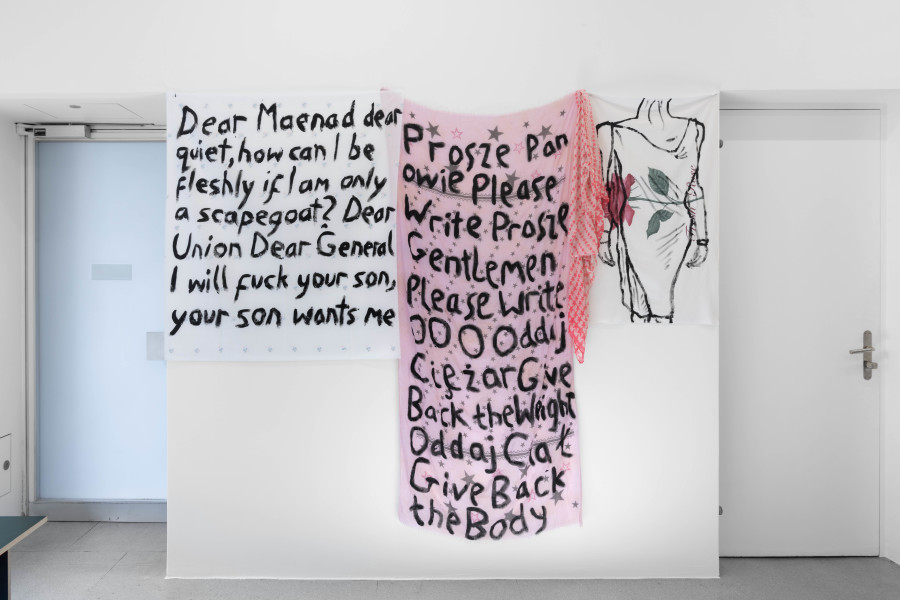 Dear Maenad dear
quiet, how can I be
fleshly if I am only
a scapegoat? Dear
Union Dear General
I will fuck your son,
your son wants me
Prosze Pan
owie Please
Write Prosze
Gentlemen
Please Write
OOO Oddaj
Ciężar Give
Back the Weight
Oddaj Ciał
Give Back
the Body